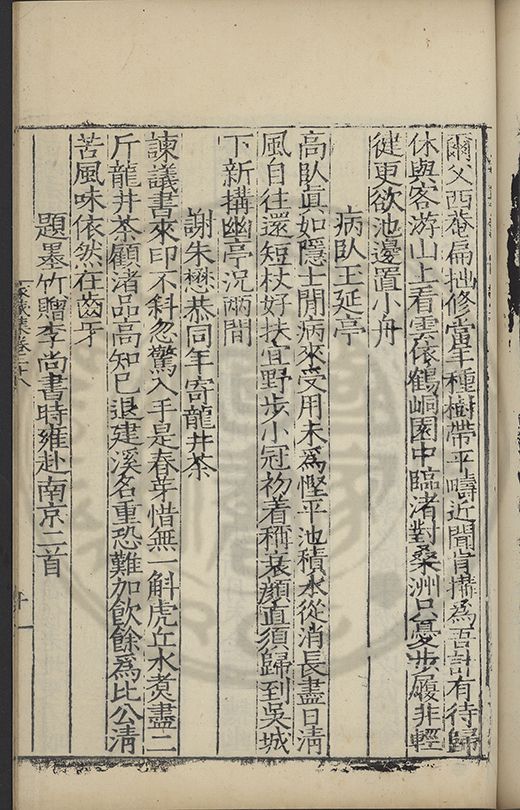 爾父西菴扁拙修當年種樹帶平疇近聞肯搆為吾計有待歸
休與客游山上看雲依鶴峒園中臨渚對桑洲只憂步履非輕
健更欲池邊置小舟
病臥王延亭
高臥真如隱士閒病來受用未為慳平池積水從消長盡日清
風自往還短杖好扶宜野步小冠初着稱衰顏直須歸到吳城
下新搆幽亭況兩間
謝朱懋恭同年寄龍井茶
諫議書來印不斜忽驚入手是春芽惜無一斛虎丘水煮盡二
斤龍井茶顧渚品高知已退建溪名重恐難加飲餘為比公清
苦風味依然在齒牙
題墨竹贈李尚書時雍赴南京二首
家藏集卷二十八